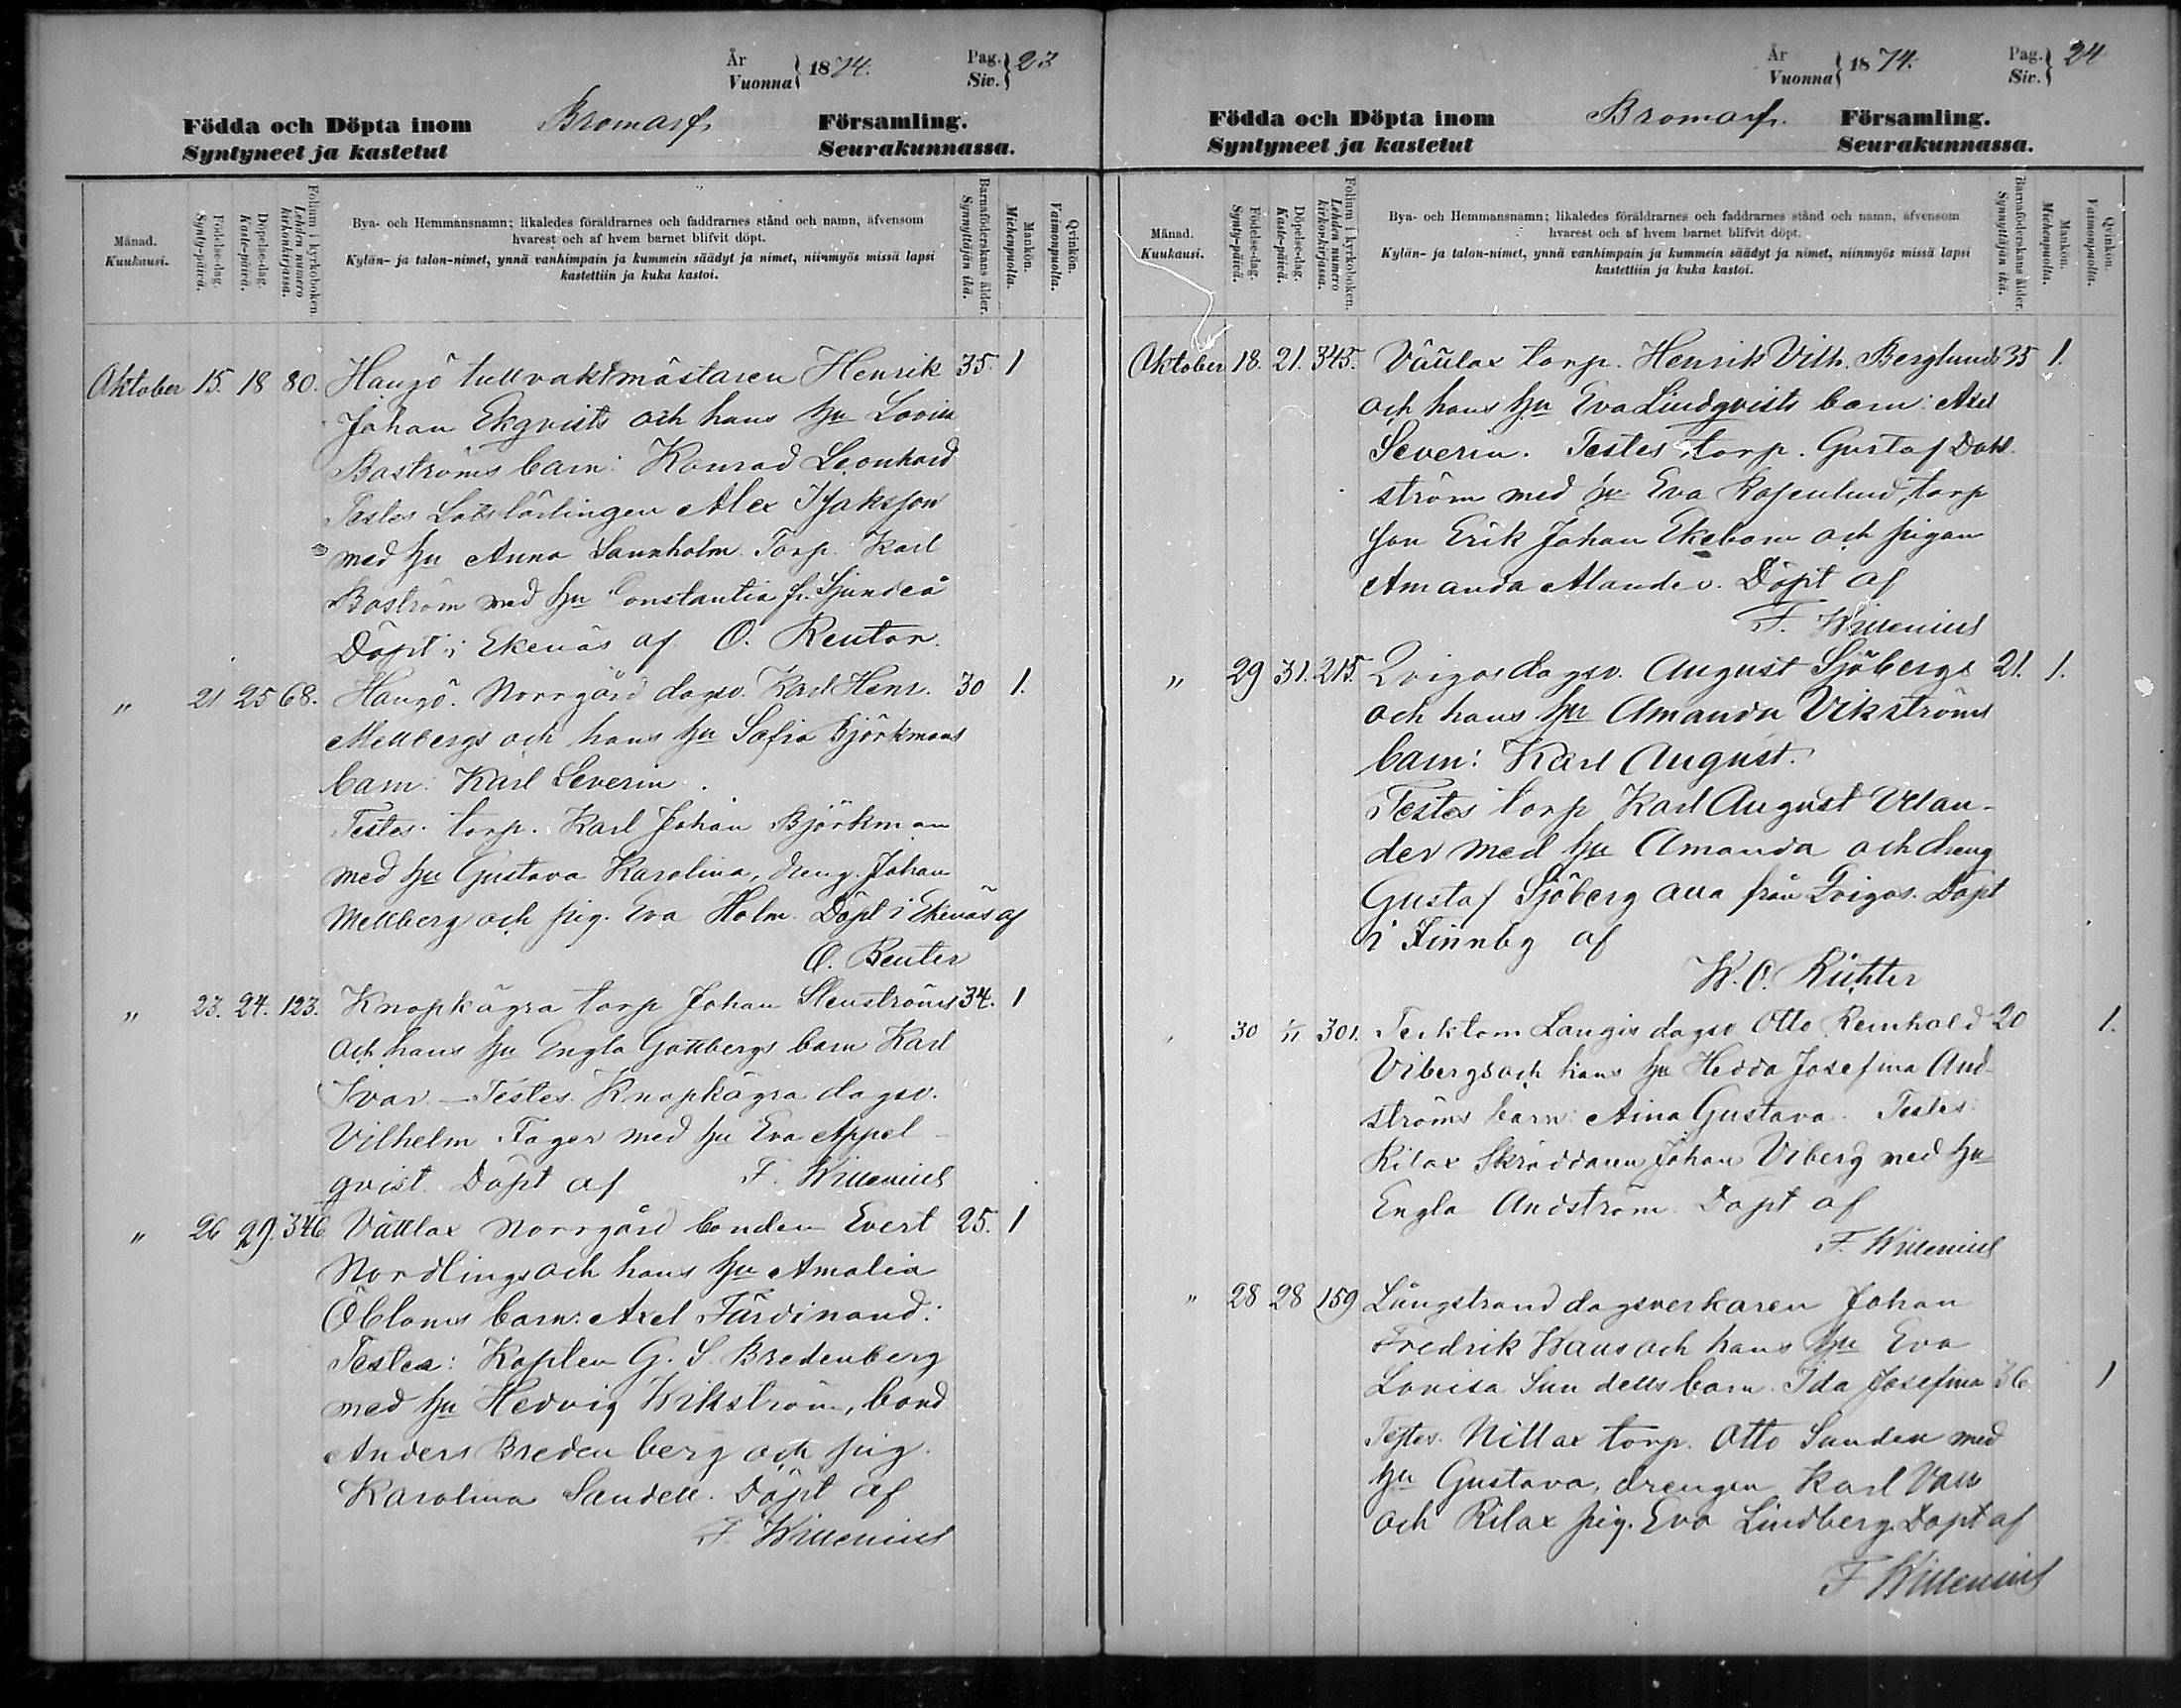 År
Vuonna } 1874.
Pag.
Siv. } 23
Födda och Döpta inom Bromarf Församling.
Syntyneet ja kastetut Seurakunnassa.
Månad.
Kuukausi.
Födelse-dag.
Synty-päivä.
Döpelse-dag.
Kaste-päivä.
Folium i kyrkoboken.
Lehden numero
kirkonkirjassa.
Bya- och Hemmansnamn; likaledes föräldrarnes och faddrarnes stånd och namn, äfvensom
hvarest och af hvem barnet blifvit döpt.
Kylän- ja talon-nimet, ynnä vanhimpain ja kummein säädyt ja nimet, niinmyös missä lapsi
kastettiin ja kuka kastoi.
Barnaföderskans ålder.
Synnyttäjän ikä.
Mankön.
Miehenpuolta.
Qvinkön.
Vaimonpuolta.
Oktober 15. 18 80. Hangö tullvaktmästaren Henrik 35. 1
Johan Ekqvists och hans hu Lovisa
Boströms barn: Konrad Leonhard
Testes Lotslärlingen Alex Isaksson
med hu Anna Sannholm. Torp. Karl
Boström med hu Constantia fr. Sjundeå
Döpt i Ekenäs af O. Reuter.
" 21 25 68. Hangö. Norrgård dagsv. Karl Henr. 30 1.
Mellbergs och hans hu Sofia Björkmans
barn: Karl Severin.
Testes. torp. Karl Johan Björkman
med hu Gustava Karolina, dreng. Johan
Mellberg och pig. Eva Holm. Döpt i Ekenäs af
O. Reuter
" 23. 24. 123. Knopkägra torp Johan Stenströms 34. 1
och hans hu Engla Gottbergs barn Karl
Ivar. — Testes. Knopkägra dagsv.
Vilhelm Fager med hu Eva Appel-
qvist. Döpt af F. Willenius
" 26 29. 346 Vättlax Norrgård bonden Evert 25. 1
Nordlings och hans hu Amalia
Öbloms barn: Axel Färdinand.
Testes: Kaplen G. S. Bredenberg
med hu Hedvig Wikström, bond
Anders Bredenberg och pig.
Karolina Sandell. Döpt af
F. Willenius
År
Vuonna } 1874.
Pag.
Siv. } 24
Födda och Döpta inom Bromarf. Församling.
Syntyneet ja kastetut Seurakunnassa.
Månad.
Kuukausi.
Födelse-dag.
Synty-päivä.
Döpelse-dag.
Kaste-päivä.
Folium i kyrkoboken.
Lehden numero
kirkonkirjassa.
Bya- och Hemmansnamn; likaledes föräldrarnes och faddrarnes stånd och namn, äfvensom
hvarest och af hvem barnet blifvit döpt.
Kylän- ja talon-nimet, ynnä vanhimpain ja kummein säädyt ja nimet, niinmyös missä lapsi
kastettiin ja kuka kastoi.
Barnaföderskans ålder.
Synnyttäjän ikä.
Mankön.
Miehenpuolta.
Qvinkön.
Vaimonpuolta.
Oktober 18. 21. 345. torp. Henrik Vilh. Berglunds 35 1.
och hans hu Eva Lindqvists barn: Axel
Severin. Testes torp. Gustaf Dahl-
ström med hu Eva Rosenlund, torp
son Erik Johan Ekebom och pigan
Amanda Alander. Döpt af
F. Willenius
" 29 31. 215. Qvigos dagsv. August Sjöbergs 21. 1.
och hans hu Amanda Vikströms
barn: Karl August.
Testes torp Karl August Velan-
der med hu Amanda och dreng
Gustaf Sjöberg alla från Qvigos. Döpt
i Finnby af
W. O. Richter
30 1/11 301. Tecktom Langis dagsv. Otto Reinhold 20 1.
Vibergs och hans hu Hedda Josefina And-
ströms barn: Aina Gustava. Testes:
Rilax Skräddaren Johan Viberg med hu
Engla Andström. Döpt af
F. Willenius
" 28 28 159 Långstrand dagsverkaren Johan
Fredrik Waus och hans hu Eva
Lovisa Sundells barn. Ida Josefina 36 1
Testes. Nitlax torp. Otto Sanden med
hu Gustava, drengen Karl
och Rilax pig. Eva Lindberg. Döpt af
F Willenius